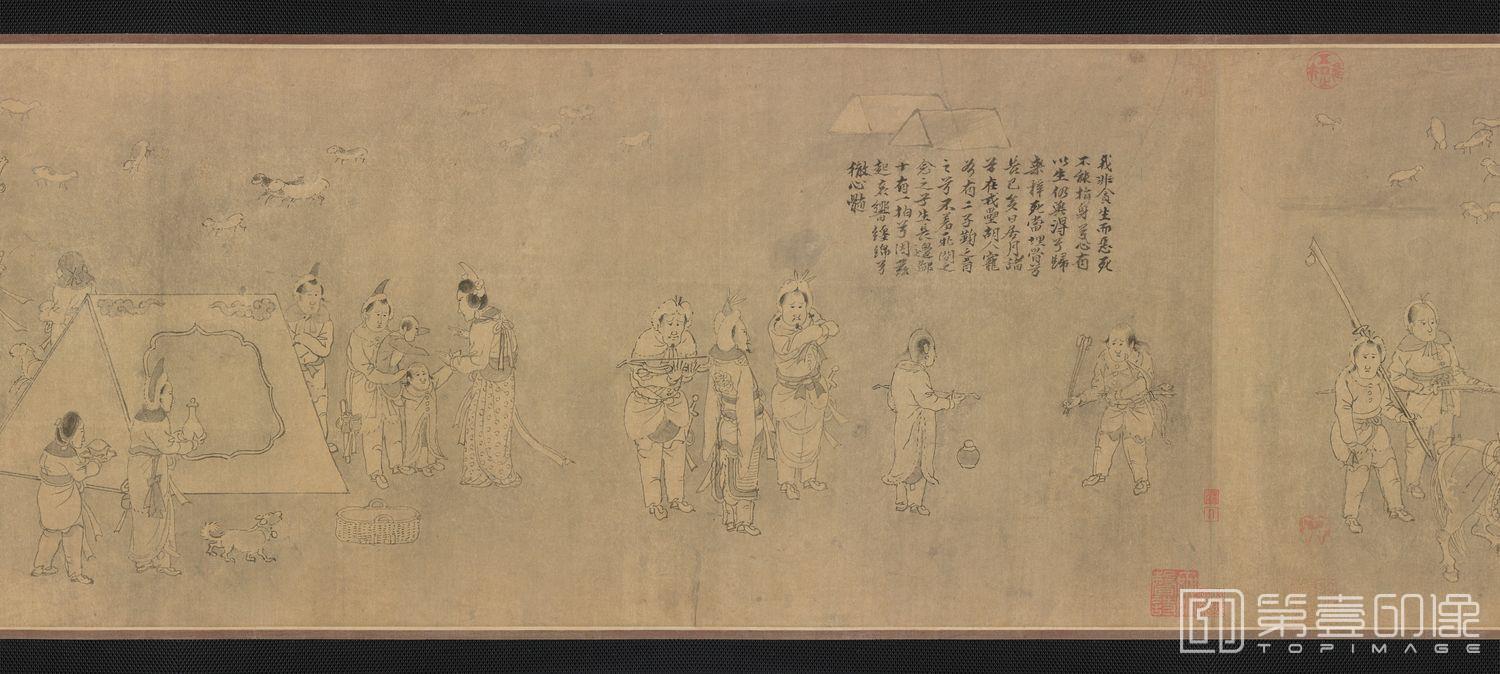 我非貪生而惡死
不能捐身兮心有
以生仍冀得兮歸
桑梓死當埋骨兮
長已矣日居月諸
兮在戎壘胡人寵
有二子鞠之育
之兮不羞恥閔之
念之兮生長邊鄙
十有一拍兮因茲
起哀響纏綿兮
徹心髓
第壹印像
TOPIMAGE